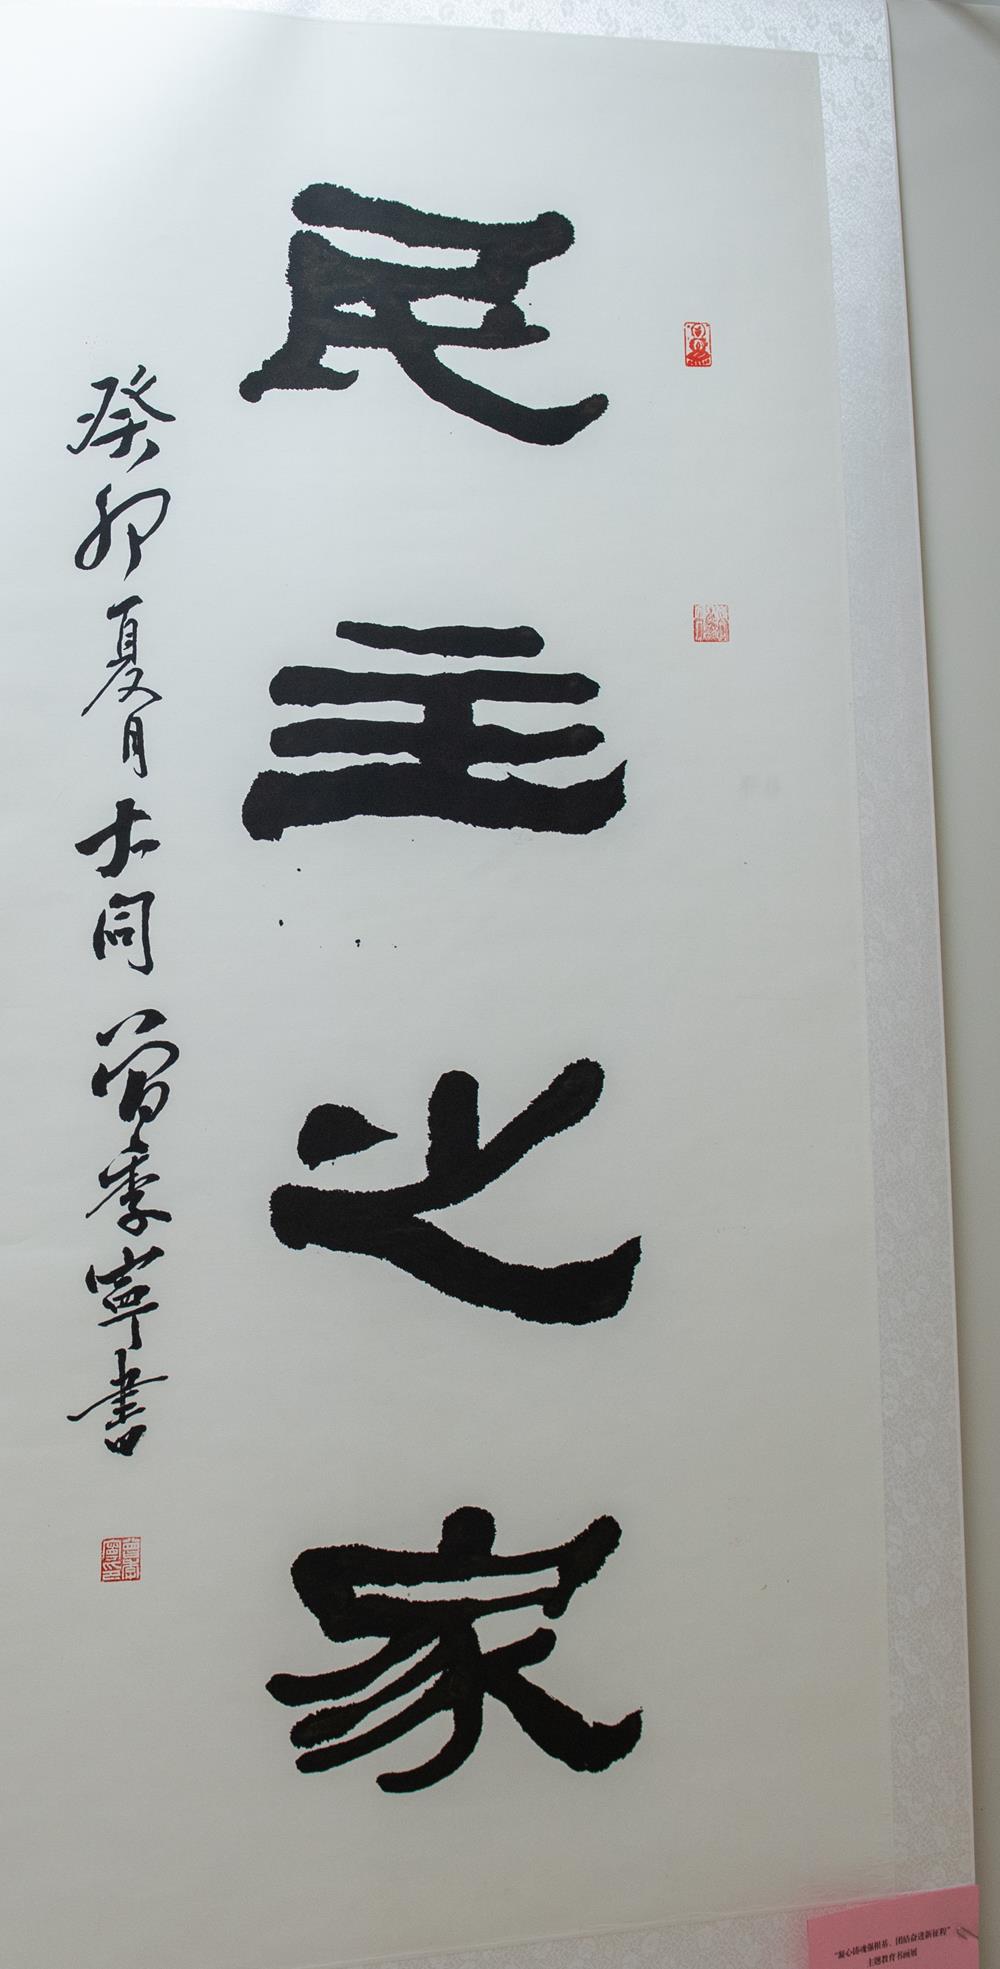 民主之家
癸卯夏月大同曾季寧書
“凝心铸魂强根基、团结奋进新征程”
主题教育书画展